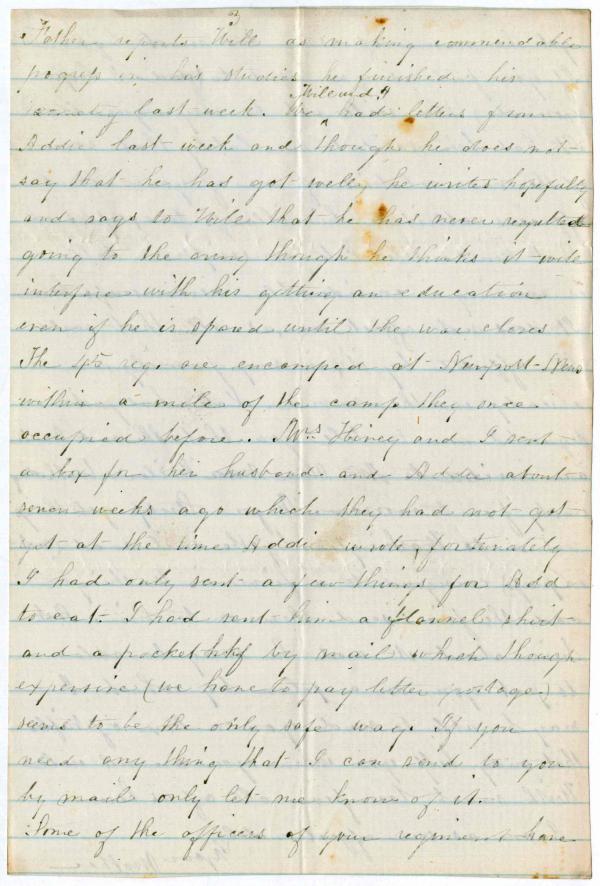 3
Father reports Will as making commendable
progress in his studies he finished his
geometry last week. We ^ Will and I had letters from
Addie last week and though he does not
say that he has got well, he writes hopefully
and says to Will that he has never regretted
going to the army though he thinks it will
interfere with his getting an education
even if he is spared until the war closes
The 45 reg. are encamped at Newport-News
within a mile of the camp they once
occupied before. Mrs and I sent
a box for her husband and Addie about
seven weeks ago which they had not got
yet at the time Addie wrote, fortunately
I had only sent a few things for Add
to eat. I had sent him a flannel shirt
and a pocket hkf by mail which though
expensive (we have to pay letter postage)
seems to be the only safe way. If you
need any thing that I can send to you
by mail only let me know of it.
Some of the officers of your regiment have